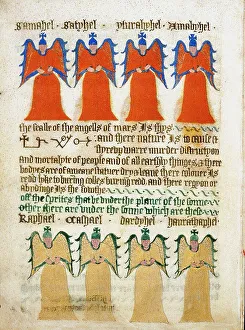 Samahel · Satyhel · yturahyhel · Amabyhel ·
the sealle of the angells of mars Is thys
and there nature Is to cause &
styrebbyp warre murder distruction
and mortalyte of people and of all earthly thinges, & there
bodyes are of a meane stature dry & leane there coloure Is
redd lyke to burning coles burning redd, and there region or
abydinge Is the Southe
off the sprites that be under the planet of the sonne
other there are under the sonne which are these
Raphael · Cashael · dardyhel · haurathaphel